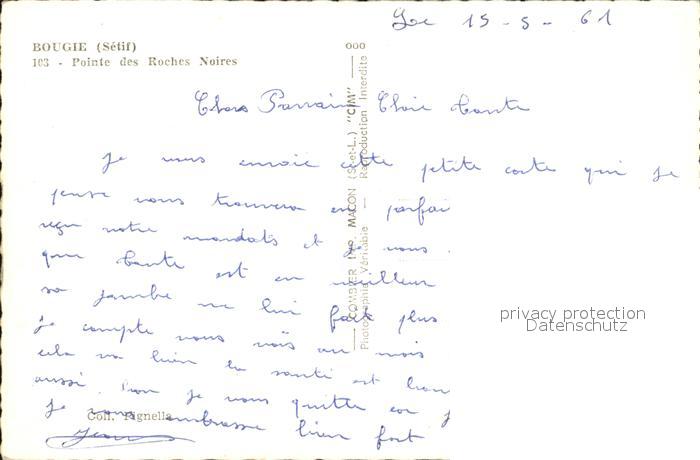 Le 15-5-61
BOUGIE (Sétif)
103 - Pointe des Roches Noires
COMBIER IMP. MACON (S.-et-L.) "CIM"
Photographie Véritable — Reproduction Interdite
Chers Parrain Chère tante
Je vous envoie cette petite carte qui je
pense vous trouvera en parfai
reçu votre mandats et je vous
que tante est en meilleur
sa jambe ne lui fait plus
Je compte vous voir au mois
cela va bien la santé est bon
aussi. bon je vous quitte car j
Je vous embrasse bien fort
Coll. Pignella
Jean
privacy protection
Datenschutz